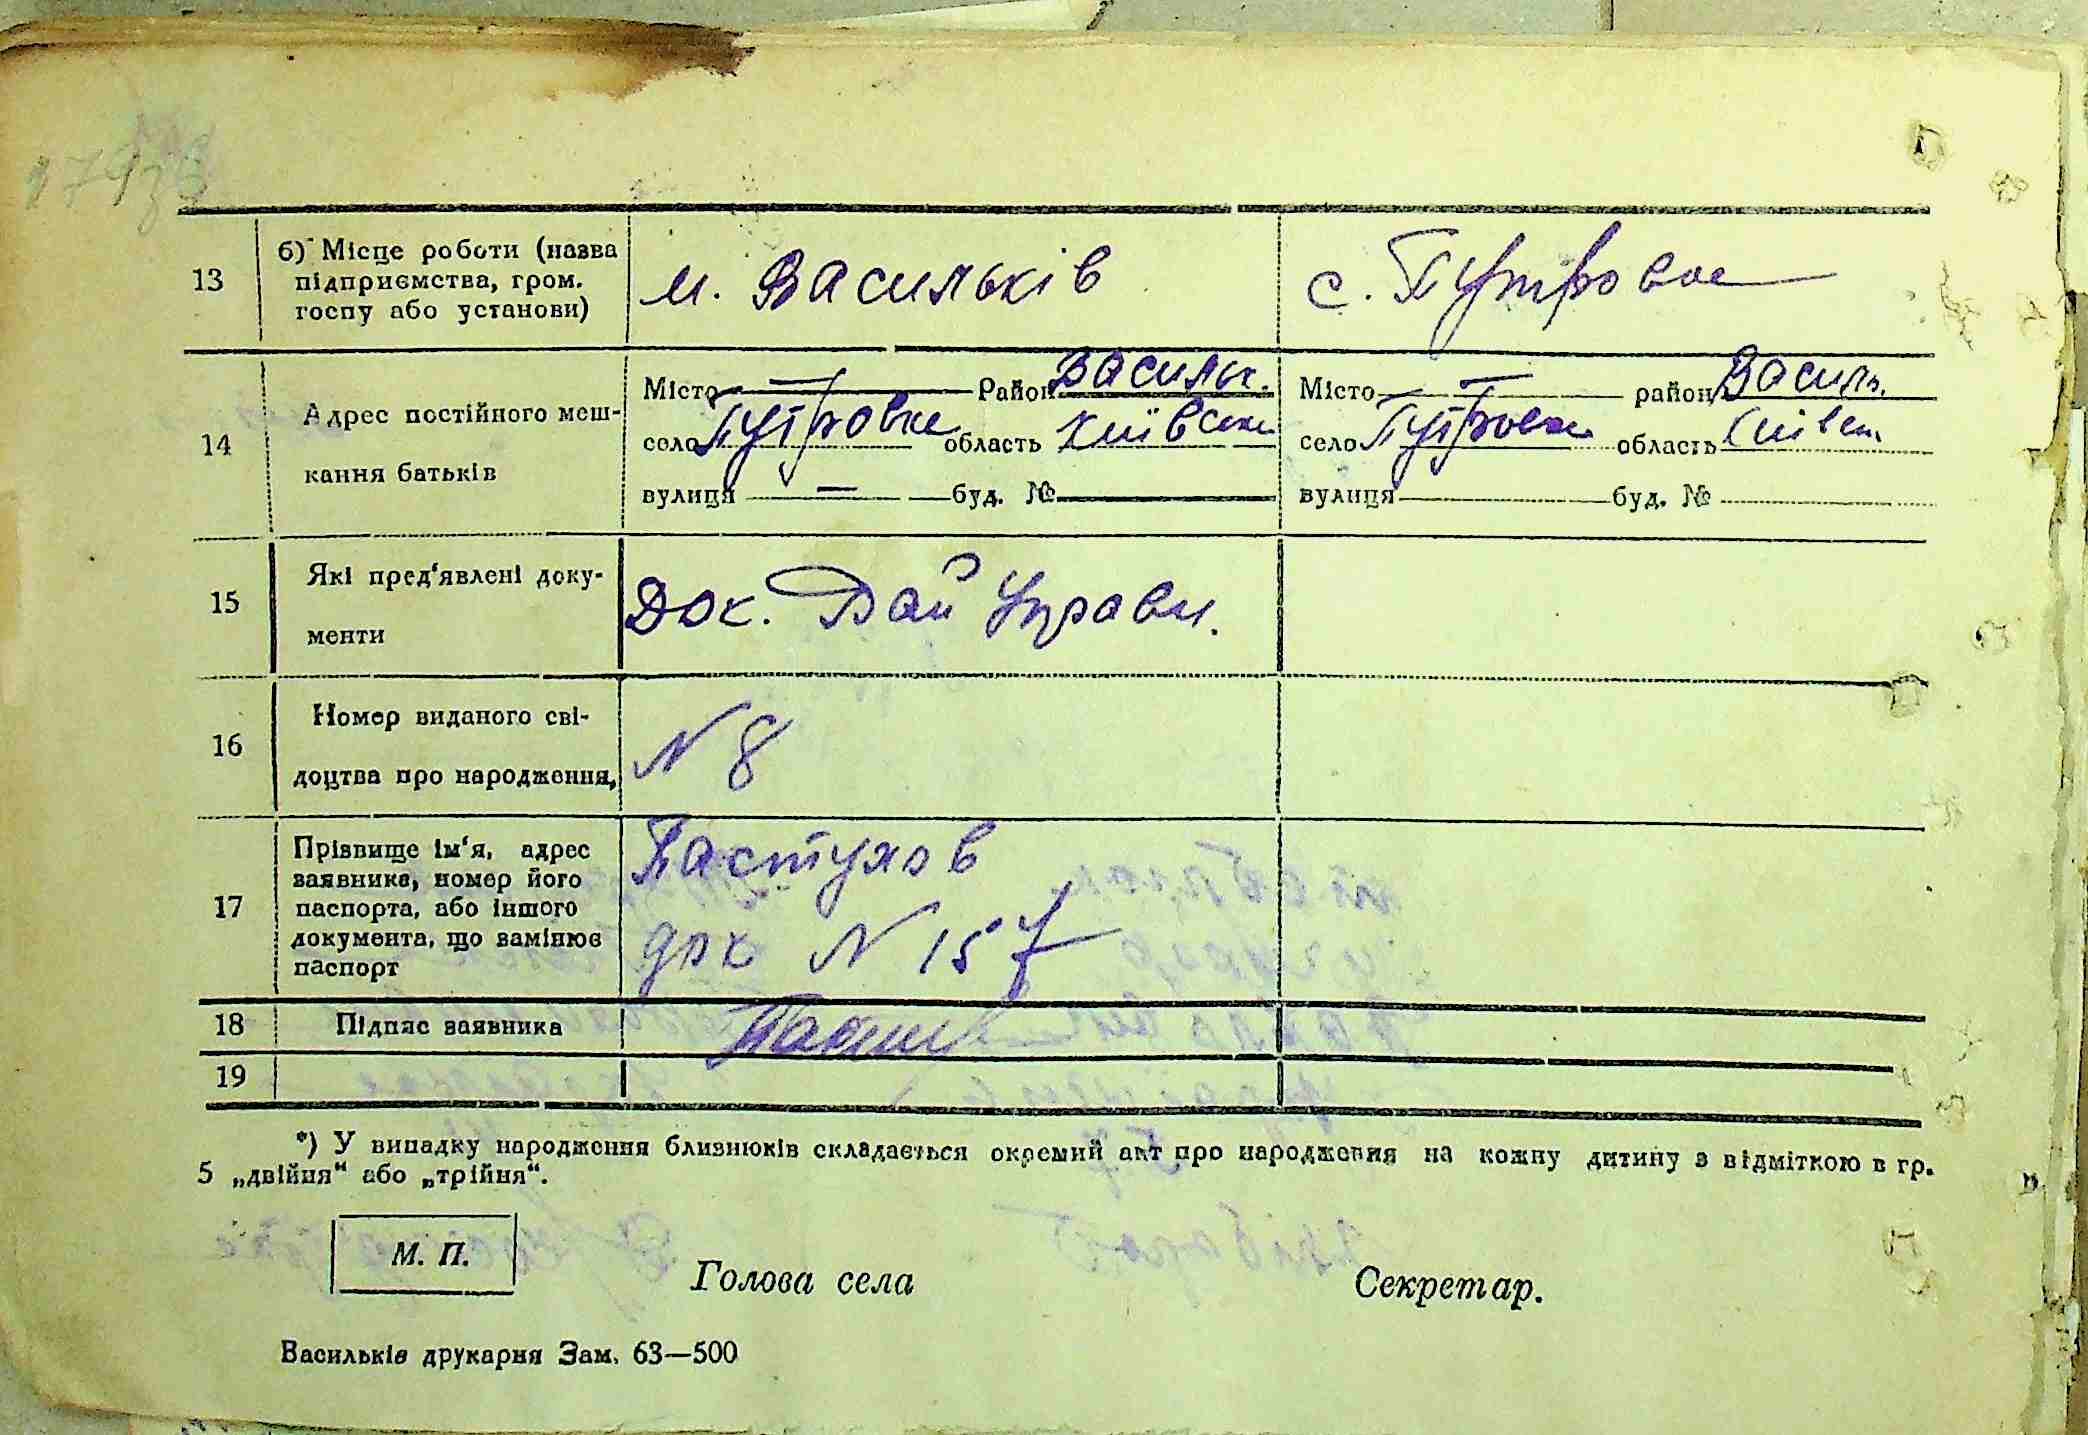 13 б) Місце роботи (назва підприємства, гром. госпу або установи) м. Васильків с. Путровка
14 Адрес постійного мешкання батьків
Місто — Район Васильк. Місто — район Василь.
село Путровка область Київськ село Путровка область Київськ.
вулиця — буд. № вулиця буд. №
15 Які пред'явлені документи Док. Рай Управи.
16 Номер виданого свідоцтва про народження, N 8
17 Прізвище ім'я, адрес заявника, номер його паспорта, або іншого документа, що замінює паспорт Пастухов
док N 157
18 Підпис заявника
19
*) У випадку народження близнюків складається окремий акт про народження на кожну дитину з відміткою в гр.
5 „двійня“ або „трійня“.
М. П.
Голова села Секретар.
Васильків друкарня Зам. 63—500